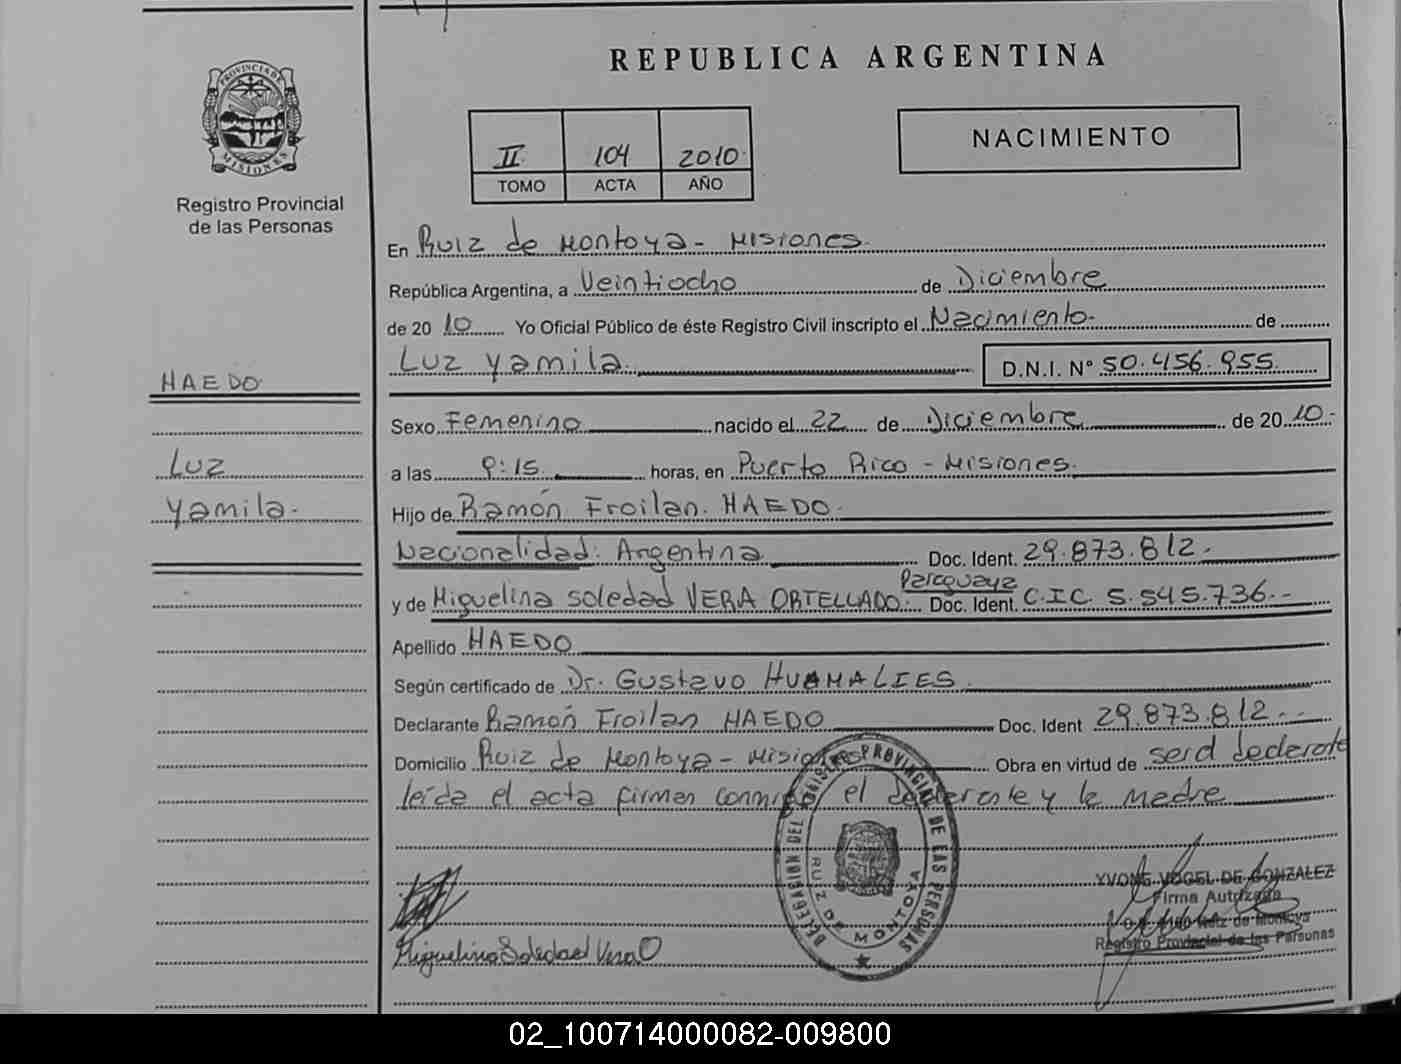 REPUBLICA ARGENTINA
PROVINCIA DE
MISIONES
Registro Provincial
de las Personas
II 104 2010
TOMO ACTA AÑO
NACIMIENTO
En Ruiz de Montoya - Misiones
República Argentina, a Veintiocho de Diciembre
de 20 10 Yo Oficial Público de éste Registro Civil inscripto el Nacimiento de
Luz Yamila D.N.I. N° 50.456.955
HAEDO
Luz
Yamila.
Sexo Femenino nacido el 22 de Diciembre de 20 10.-
a las 9:15 horas, en Puerto Rico - Misiones.
Hijo de Ramón Froilan HAEDO.
Nacionalidad: Argentina Doc. Ident. 29.873.812.-
Paraguaya
y de Miguelina Soledad VERA ORTELLADO. Doc. Ident. C.I.C. 5.545.736.-
Apellido HAEDO
Según certificado de Dr. Gustavo HUAMALIES.
Declarante Ramón Froilan HAEDO Doc. Ident 29.873.812.-
Domicilio Ruiz de Montoya - Misiones Obra en virtud de ser declarante
leída el acta firman conmigo el declarante y la madre
DELEGACION DEL REGISTRO PROVINCIAL DE LAS PERSONAS
RUIZ DE MONTOYA
YVONE VOGEL DE GONZALEZ
Firma Autorizada
Ruiz de Montoya
Registro Provincial de las Personas
Miguelina Soledad Vera O
02_100714000082-009800